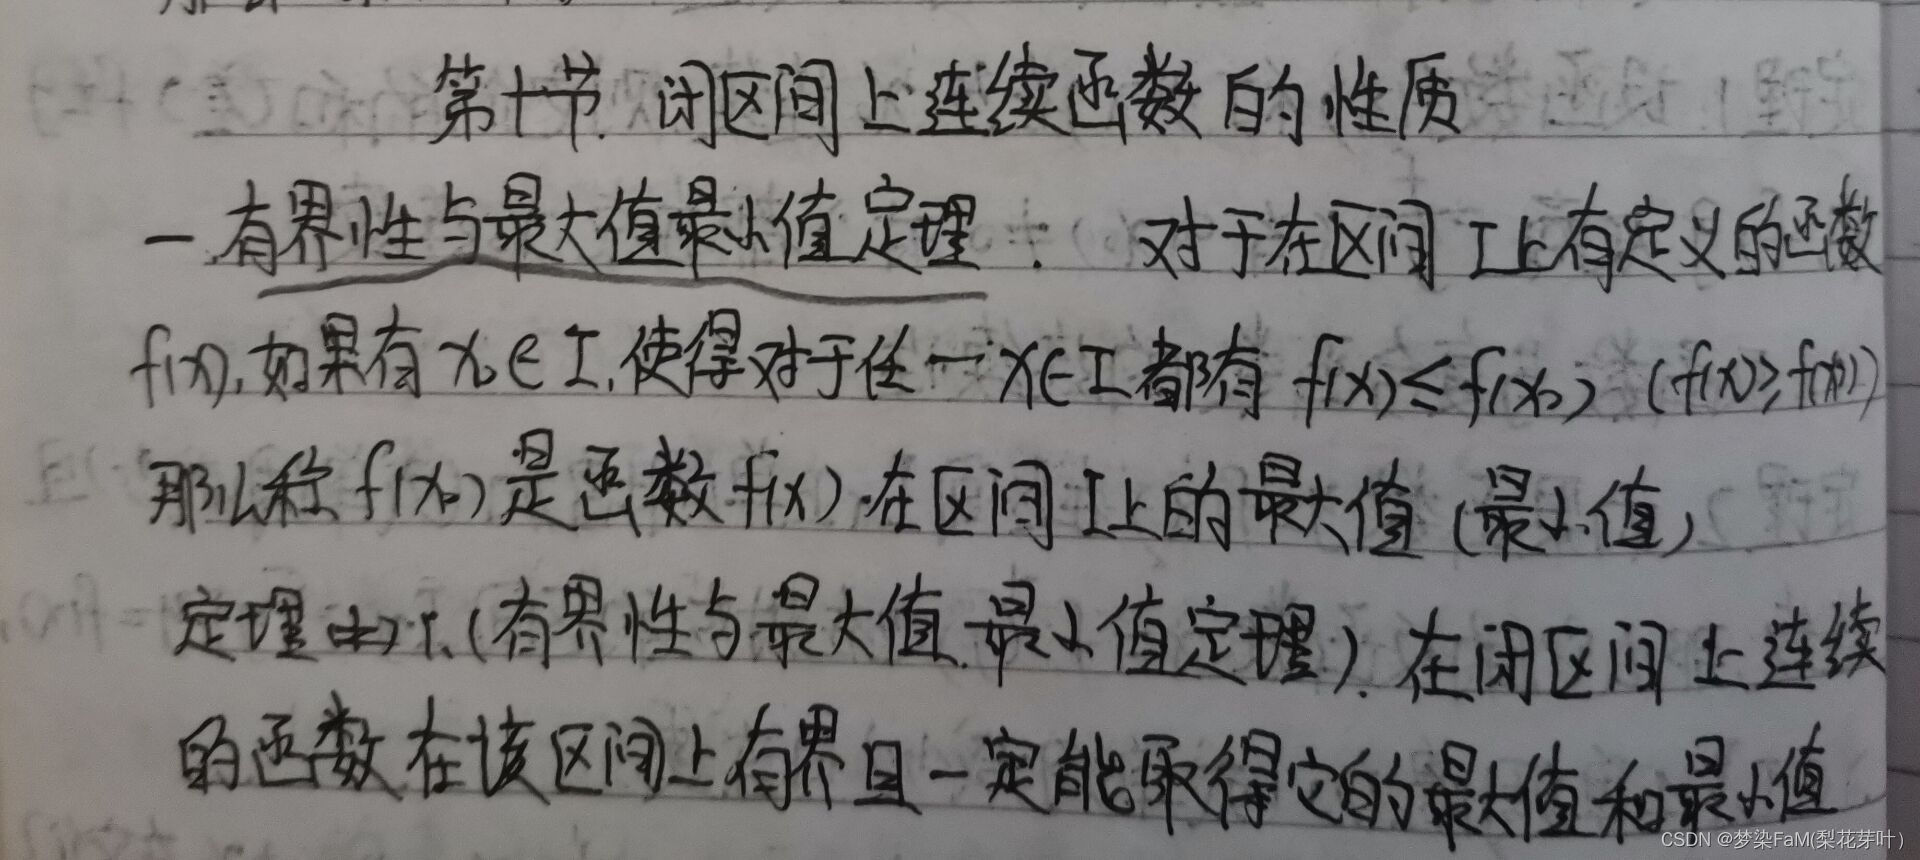 第十节.闭区间上连续函数的性质
一.有界性与最大值最小值定理: 对于在区间I上有定义的函数
f(x),如果有x₀∈I,使得对于任一x∈I都有f(x)≤f(x₀) (f(x)≥f(x₀))
那么称f(x₀)是函数f(x)在区间I上的最大值(最小值)
定理 1.(有界性与最大值最小值定理).在闭区间上连续
的函数在该区间上有界且一定能取得它的最大值和最小值
CSDN @梦染FaM(梨花芽叶)